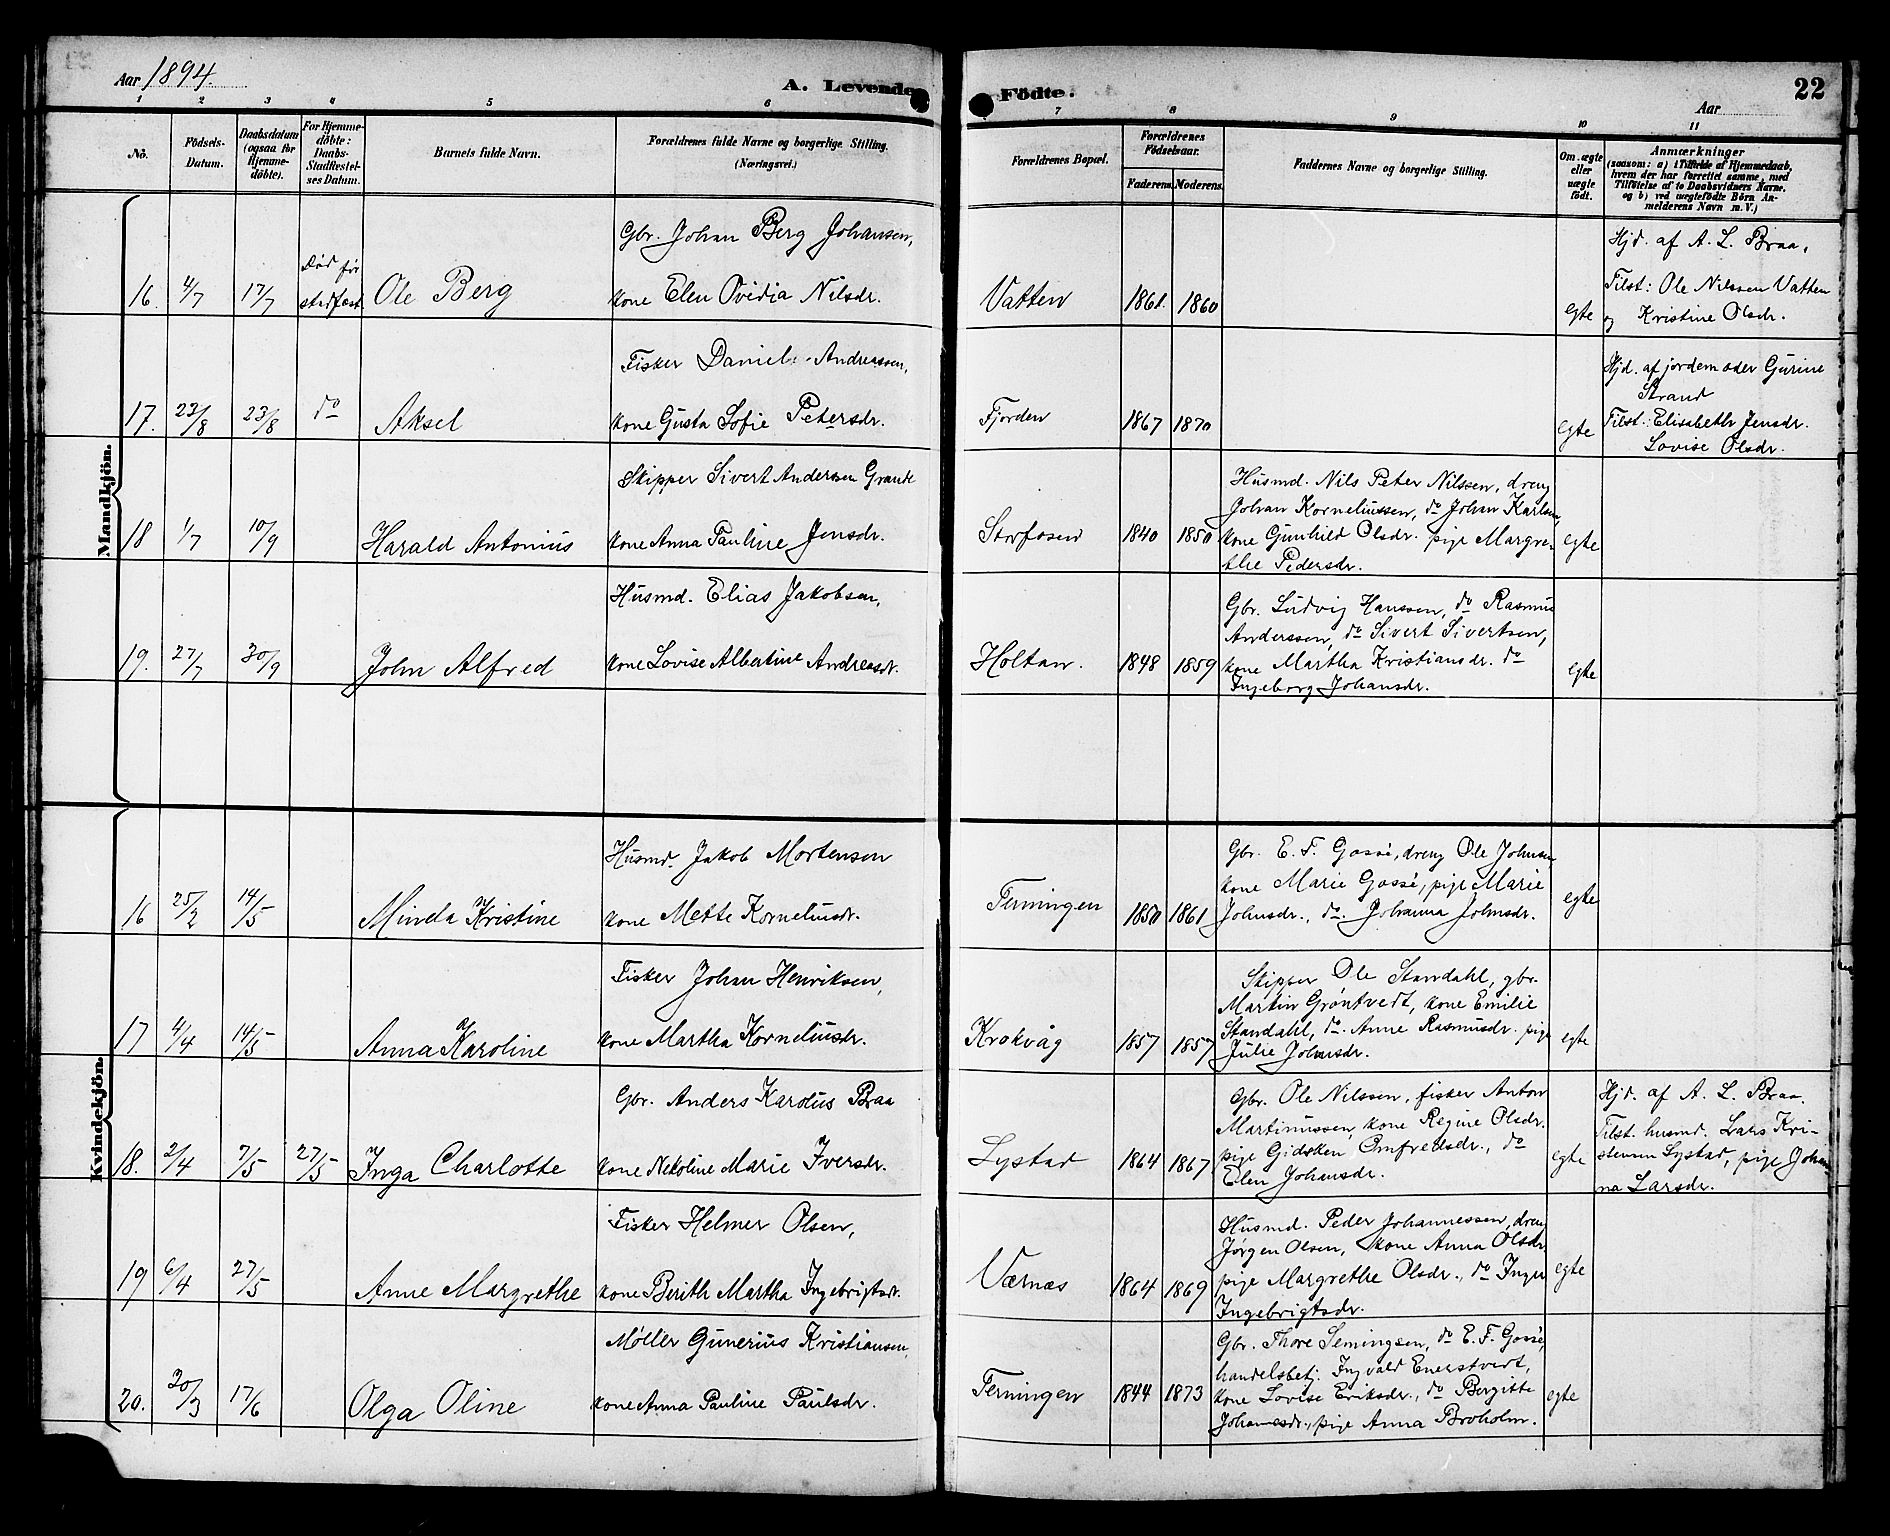 Aar 1894.
A. Levende
Födte.
22
Aar
1 2 3 4 5 6 7 8 9 10 11
No.
Födsels-
Datum.
Daabsdatum
(ogsaa för
Hjemme-
döbte).
For Hjemme-
döbte:
Daabs-
Stadfæstel-
ses Datum.
Barnets fulde Navn.
Forældrenes fulde Navne og borgerlige Stilling.
(Næringsvei.)
Forældrenes Bopæl.
Forældrenes
Födselsaar.
Faderens.
Moderens.
Faddernes Navne og borgerlige Stilling.
Om ægte
eller
uægte
födt.
Anmærkninger
(saasom: a) i Tilfælde af Hjemmedaab,
hvem der har forrettet samme, med
Tilföielse af to Daabsvidners Navne.
og b) ved uægtefödte Börn An-
melderens Navn m. V.)
Mandkjön.
16. 4/7 17/7 Död før
stadfæst.
Ole Berg
Gbr. Johan Berg Johansen,
kone Elen Ovidia Nilsdr.
Vatten 1861. 1860 egte
Hjd. af A. L. Braa,
Tilst: Ole Nilssen Vatten
og Kristine Olsdr.
17. 23/8 23/8 do Aksel
Fisker Daniel Andreassen,
kone Gusta Sofie Petersdr.
Fjorden 1867 1870 egte
Hjd. af jordemoder Gurine
Strand
Tilst.: Elisabeth Jensdr.
Lovise Olsdr.
18 1/7 10/9 Harald Antonius
Skipper Sivert Anderssen Grande
kone Anna Pauline Jensdr.
Storfosen 1840 1850
Husmd. Nils Peter Nilssen, dreng
Johan Korneliussen, do Johan Karlsen,
kone Gunhild Olsdr. pige Margre-
the Pedersdr.
egte
19. 27/7 30/9 John Alfred
Husmd. Elias Jakobsen,
kone Lovise Albertine Andreasdr.
Holtan. 1848 1859
Gbr. Ludvig Hanssen, do Rasmus
Anderssen, do Sivert Sivertsen,
kone Martha Kristiansdr. do
Ingeborg Johansdr.
egte
Kvindekjön.
16 25/2 14/5 Minda Kristine
Husmd. Jakob Mortensen
kone Mette Korneliusdr.
Terningen 1850 1861
Gbr. E. F. Gossé, dreng Ole Johnsen,
kone Marie Gossé, pige Marie
Johnsdr., do. Johanna Johnsdr.
egte
17 4/4 14/5 Anna Karoline
Fisker Johan Henriksen,
kone Martha Korneliusdr.
Krokvåg 1857 1857
Skipper Ole Standahl, gbr.
Martin Grøntvedt, kone Emilie
Standahl, do. Anne Rasmusdr. pige
Julie Johansdr.
egte
18. 2/4 7/5 27/5 Inga Charlotte
Gbr. Anders Karolus Braa
kone Nekoline Marie Iversdr.
Lystad 1864 1867
Gbr. Ole Nilssen, fisker Anton
Martinussen, kone Regine Olsdr.
pige Gidsken Arnfredsdr., do
Elen Johansdr.
egte
Hjd. af A. L. Braa.
Tilst. husmd. Lars Kri-
stensen Lystad, pige Johan
na Larsdr.
19 6/4 27/5 Anne Margrethe
Fisker Helmer Olsen,
kone Berith Martha Ingebrigtsdr.
Værnæs 1864 1869
Husmd. Peder Johannessen, dreng
Jørgen Olsen, kone Anna Olsdr.
pige Margrethe Olsdr., do Inger
Ingebrigtsdr.
egte
20. 20/3 17/6 Olga Oline
Møller Gunerius Kristiansen,
kone Anna Pauline Paulsdr.
Terningen 1844 1873
Gbr. Thore Semingsen, do E. F. Gossé,
handelsbetj. Ingvald Enerstvedt,
kone Lovise Eriksdr., do Bergitte
Johannesdr., pige Anna Broholm.
egte